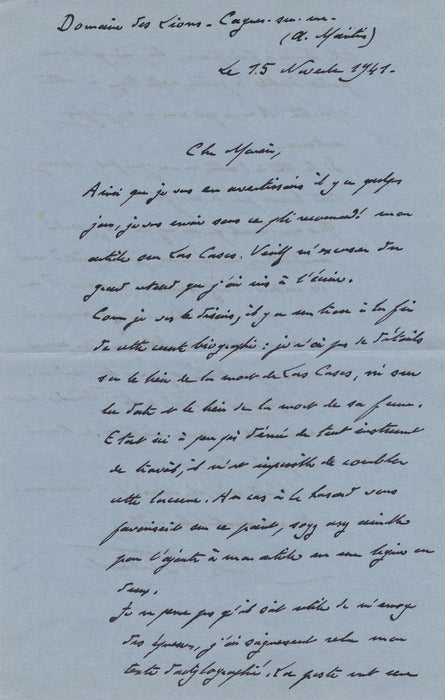 Domaine des Lions - Cagnes-sur-mer
(A. Mmes)
Le 15 Novembre 1941 -
Cher Monsieur,
Ainsi que je vous en avertissais il y a quelques
jours, je vous envoie sous ce pli recommandé mon
article sur Las Cases. Veuillez m'excuser du
grand retard que j'ai mis à l'écrire.
Comme je vous le disais, il y a un trou à la fin
de cette courte biographie : je n'ai pas de détails
sur le lieu de la mort de Las Cases, ni sur
la date et le lieu de la mort de sa femme.
Etant ici à peu près dénué de tout instrument
de travail, il m'est impossible de combler
cette lacune. Au cas où le hasard vous
favoriserait sur ce point, soyez assez aimable
pour l'ajouter à mon article en une ligne ou
deux.
Je ne pense pas qu'il soit utile de m'envoyer
des épreuves, j'ai soigneusement relu mon
texte dactylographié. La poste met une